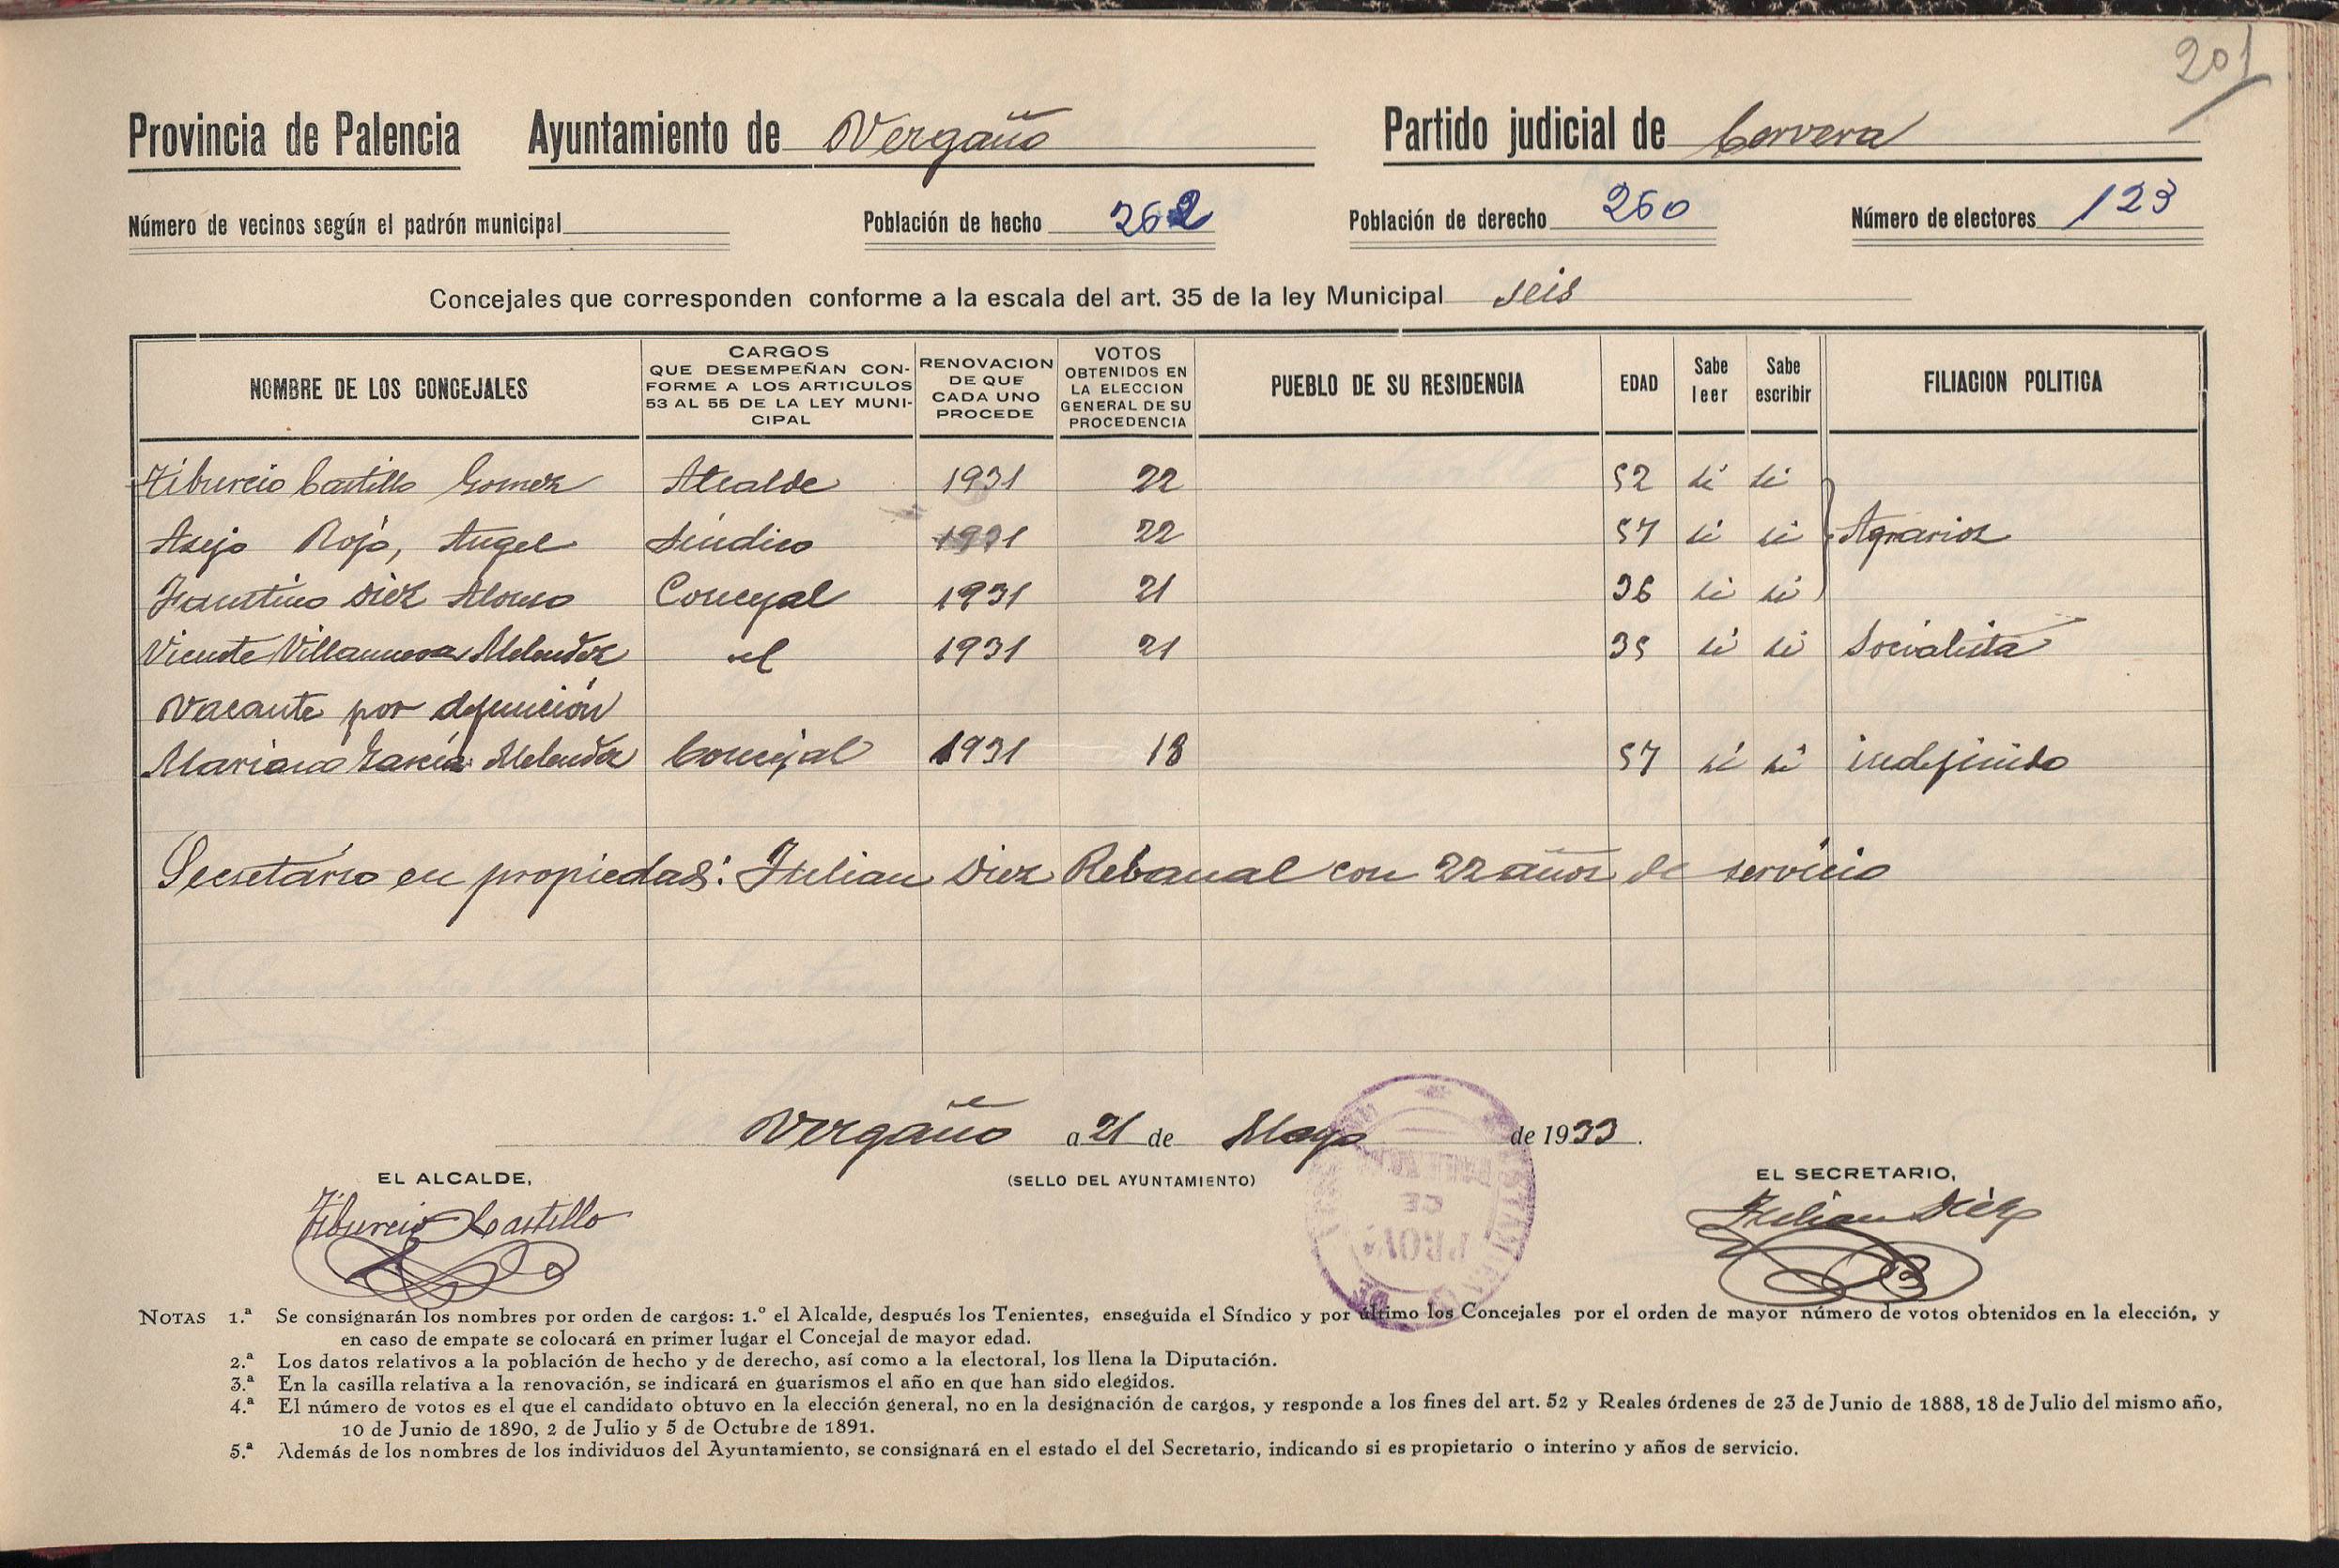 201
Provincia de Palencia Ayuntamiento de Vergaño Partido judicial de Cervera
Número de vecinos según el padrón municipal Población de hecho 262 Población de derecho 260 Número de electores 123
Concejales que corresponden conforme a la escala del art. 35 de la ley Municipal seis
NOMBRE DE LOS CONCEJALES
CARGOS
QUE DESEMPEÑAN CON-
FORME A LOS ARTICULOS
53 AL 55 DE LA LEY MUNI-
CIPAL
RENOVACION
DE QUE
CADA UNO
PROCEDE
VOTOS
OBTENIDOS EN
LA ELECCION
GENERAL DE SU
PROCEDENCIA
PUEBLO DE SU RESIDENCIA
EDAD
Sabe
leer
Sabe
escribir
FILIACION POLITICA
Tiburcio Castillo Gomez Alcalde 1931 22 52 si si
Asejo Rojo, Angel Síndico 1931 22 57 si si Agrarios
Faustino Diez Alonso Concejal 1931 21 36 si si
Vicente Villanueva Melendez id 1931 21 35 si si Socialista
Vacante por defunción
Mariano García Melendez Concejal 1931 18 57 si si indefinido
Secretario en propiedad: Julian Diez Rebanal con 22 años de servicio
Vergaño a 21 de Mayo de 1933.
EL ALCALDE, (SELLO DEL AYUNTAMIENTO) EL SECRETARIO,
Tiburcio Castillo Julian Diez
NOTAS 1.ª Se consignarán los nombres por orden de cargos: 1.º el Alcalde, después los Tenientes, enseguida el Síndico y por último los Concejales por el orden de mayor número de votos obtenidos en la elección, y
en caso de empate se colocará en primer lugar el Concejal de mayor edad.
2.ª Los datos relativos a la población de hecho y de derecho, así como a la electoral, los llena la Diputación.
3.ª En la casilla relativa a la renovación, se indicará en guarismos el año en que han sido elegidos.
4.ª El número de votos es el que el candidato obtuvo en la elección general, no en la designación de cargos, y responde a los fines del art. 52 y Reales órdenes de 23 de Junio de 1888, 18 de Julio del mismo año,
10 de Junio de 1890, 2 de Julio y 5 de Octubre de 1891.
5.ª Además de los nombres de los individuos del Ayuntamiento, se consignará en el estado el del Secretario, indicando si es propietario o interino y años de servicio.